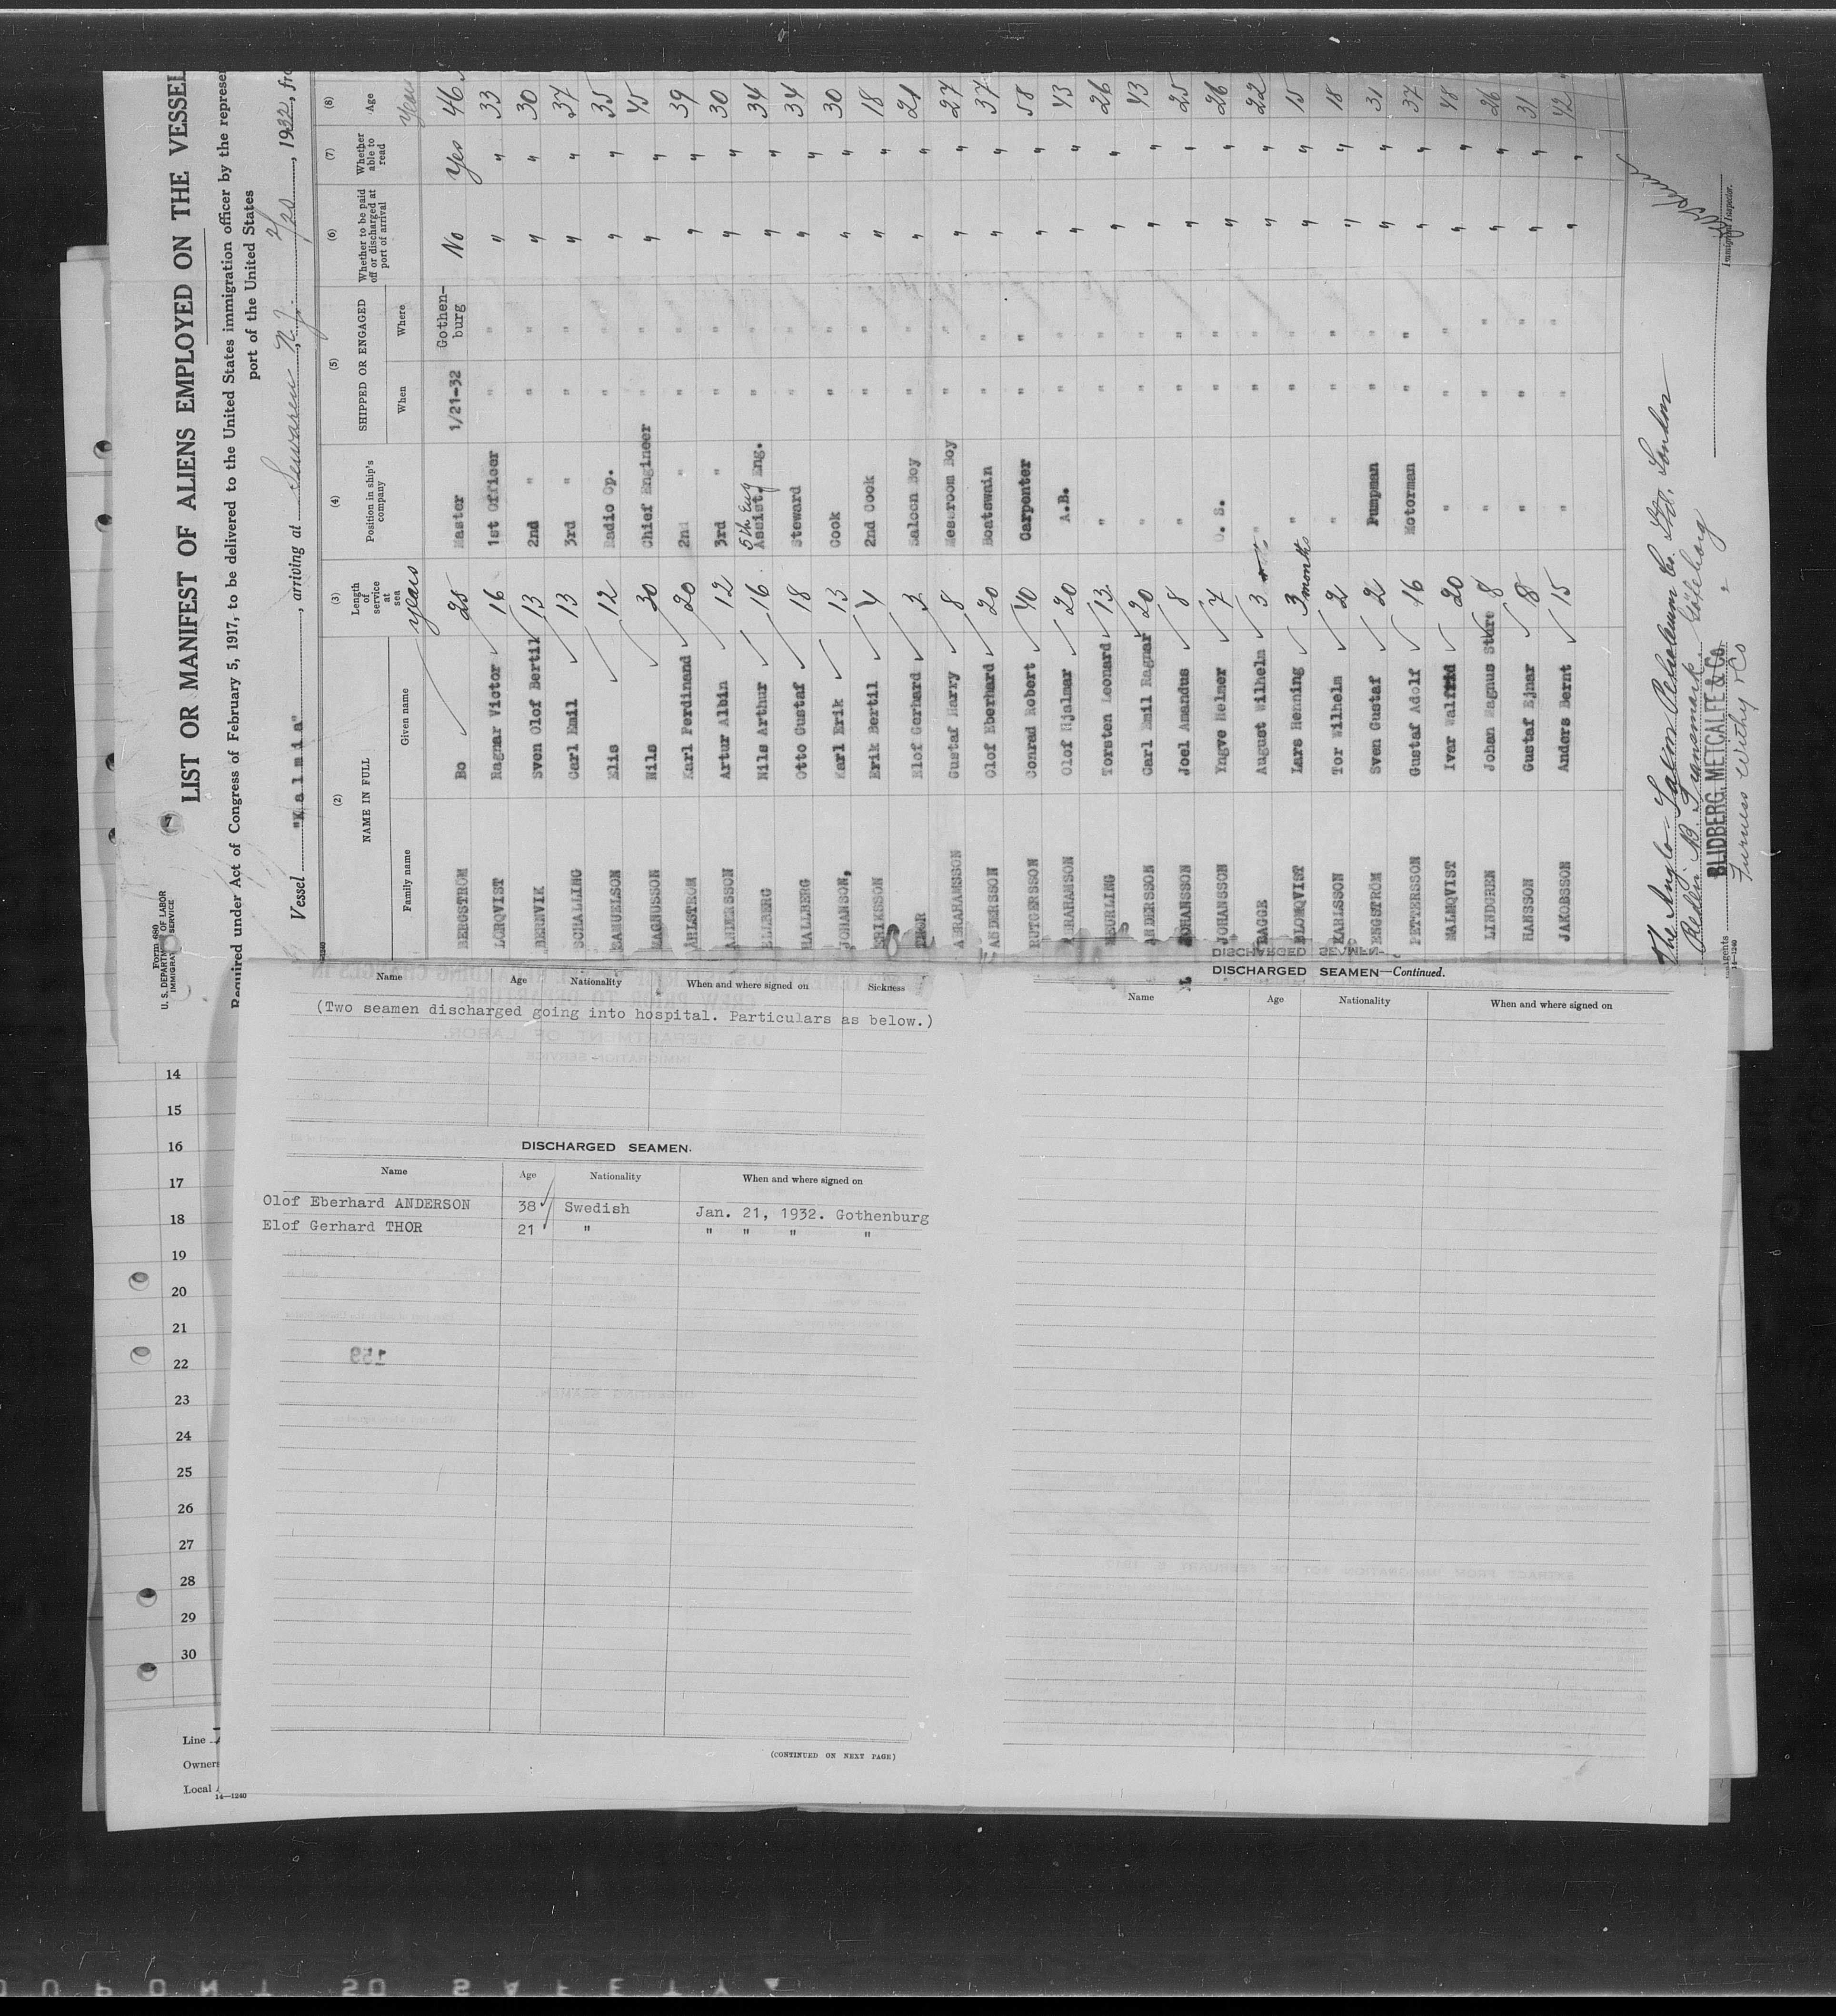 Form 680
U. S. DEPARTMENT OF LABOR
IMMIGRATION SERVICE
LIST OR MANIFEST OF ALIENS EMPLOYED ON THE VESSEL
Required under Act of Congress of February 5, 1917, to be delivered to the United States immigration officer by the represe
port of the United States
Vessel "Kalmia", arriving at Sewaren N.J. 2/20, 1932, fro
(2) (3) (4) (5) (6) (7) (8)
NAME IN FULL Length of service at sea Position in ship's company SHIPPED OR ENGAGED Whether to be paid off or discharged at port of arrival Whether able to read Age
Family name Given name When Where
years years
BERGSTRÖM Bo 25 Master 1/21-32 Gothenburg No Yes 46
LÖRQVIST Ragnar Victor 16 1st Officer " " " " 33
BERNVIK Sven Olof Bertil 13 2nd " " " " " 30
SCHALLING Carl Emil 13 3rd " " " " " 37
SAMUELSON Elis 12 Radio Op. " " " " 35
MAGNUSSON Nils 30 Chief Engineer " " " " 45
ÅHLSTRÖM Karl Ferdinand 20 2nd " " " " " 39
ANDERSSON Artur Albin 12 3rd " " " " " 30
ELLBERG Nils Arthur 16 5th Eng Assist. Eng. " " " " 34
HALLBERG Otto Gustaf 18 Steward " " " " 34
JOHANSON, Karl Erik 13 Cook " " " " 30
ERIKSSON Erik Bertil 4 2nd Cook " " " " 18
THOR Elof Gerhard 3 Saloon Boy " " " " 21
ABRAHAMSSON Gustaf Harry 8 Messroom Boy " " " " 27
ANDERSSON Olof Eberhard 20 Boatswain " " " " 37
RUTGERSSON Conrad Robert 40 Carpenter " " " " 58
ABRAHAMSON Olof Hjalmar 20 A.B. " " " " 43
MEURLING Torsten Leonard 13 " " " " " 26
ANDERSSON Carl Emil Ragnar 20 " " " " " 43
JOHANSSON Joel Amandus 8 " " " " " 25
JOHANSSON Yngve Helmer 7 O. S. " " " " 26
BAGGE August Wilhelm 3 " " " " " 22
BLOMQVIST Lars Henning 3 months " " " " " 15
KARLSSON Tor Wilhelm 2 " " " " " 18
BENGSTRÖM Sven Gustaf 2 Pumpman " " " " 31
PETTERSSON Gustaf Adolf 16 Motorman " " " " 37
MALMQVIST Ivar Walfrid 20 " " " " " 48
LINDGREN Johan Magnus Sture 8 " " " " " 26
HANSSON Gustaf Ejnar 18 " " " " " 31
JAKOBSSON Anders Bernt 15 " " " " " 42
The Anglo-Saxon Petroleum Co. Ltd. London
Rederi A.B. Transmark, Göteborg
BLIDBERG, METCALFE & Co.
Furness Withy & Co
Agents
Immigrant Inspector.
14-1240
Name Age Nationality When and where signed on Sickness
(Two seamen discharged going into hospital. Particulars as below.)
DISCHARGED SEAMEN.
Name Age Nationality When and where signed on
Olof Eberhard ANDERSON 38 Swedish Jan. 21, 1932. Gothenburg
Elof Gerhard THOR 21 " " " " "
159
(CONTINUED ON NEXT PAGE)
DISCHARGED SEAMEN—
DISCHARGED SEAMEN—Continued.
Name Age Nationality When and where signed on
14
15
16
17
18
19
20
21
22
23
24
25
26
27
28
29
30
Line
Owners
Local
14—1240
DUPONT SO SAFETY